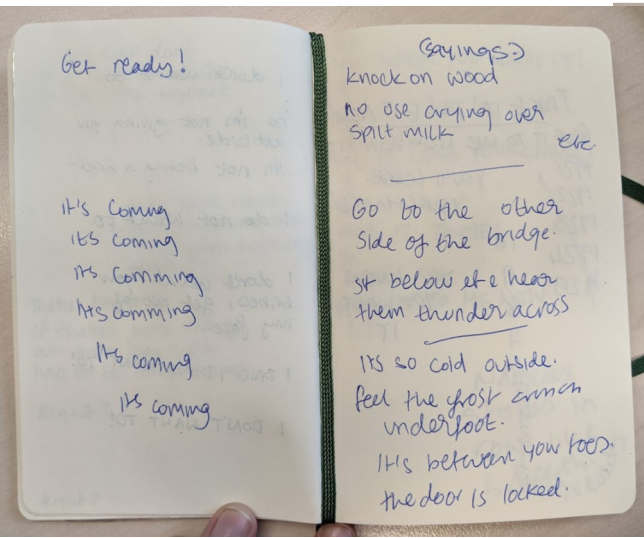 Get ready!
it's coming
its coming
its comming
its comming
its coming
its coming
(sayings:)
knock on wood
no use crying over
spilt milk
etc.
Go to the other
side of the bridge.
below hear
them thunder across
Its so cold outside.
feel the frost crunch
underfoot.
Its between your toes.
the door is locked.